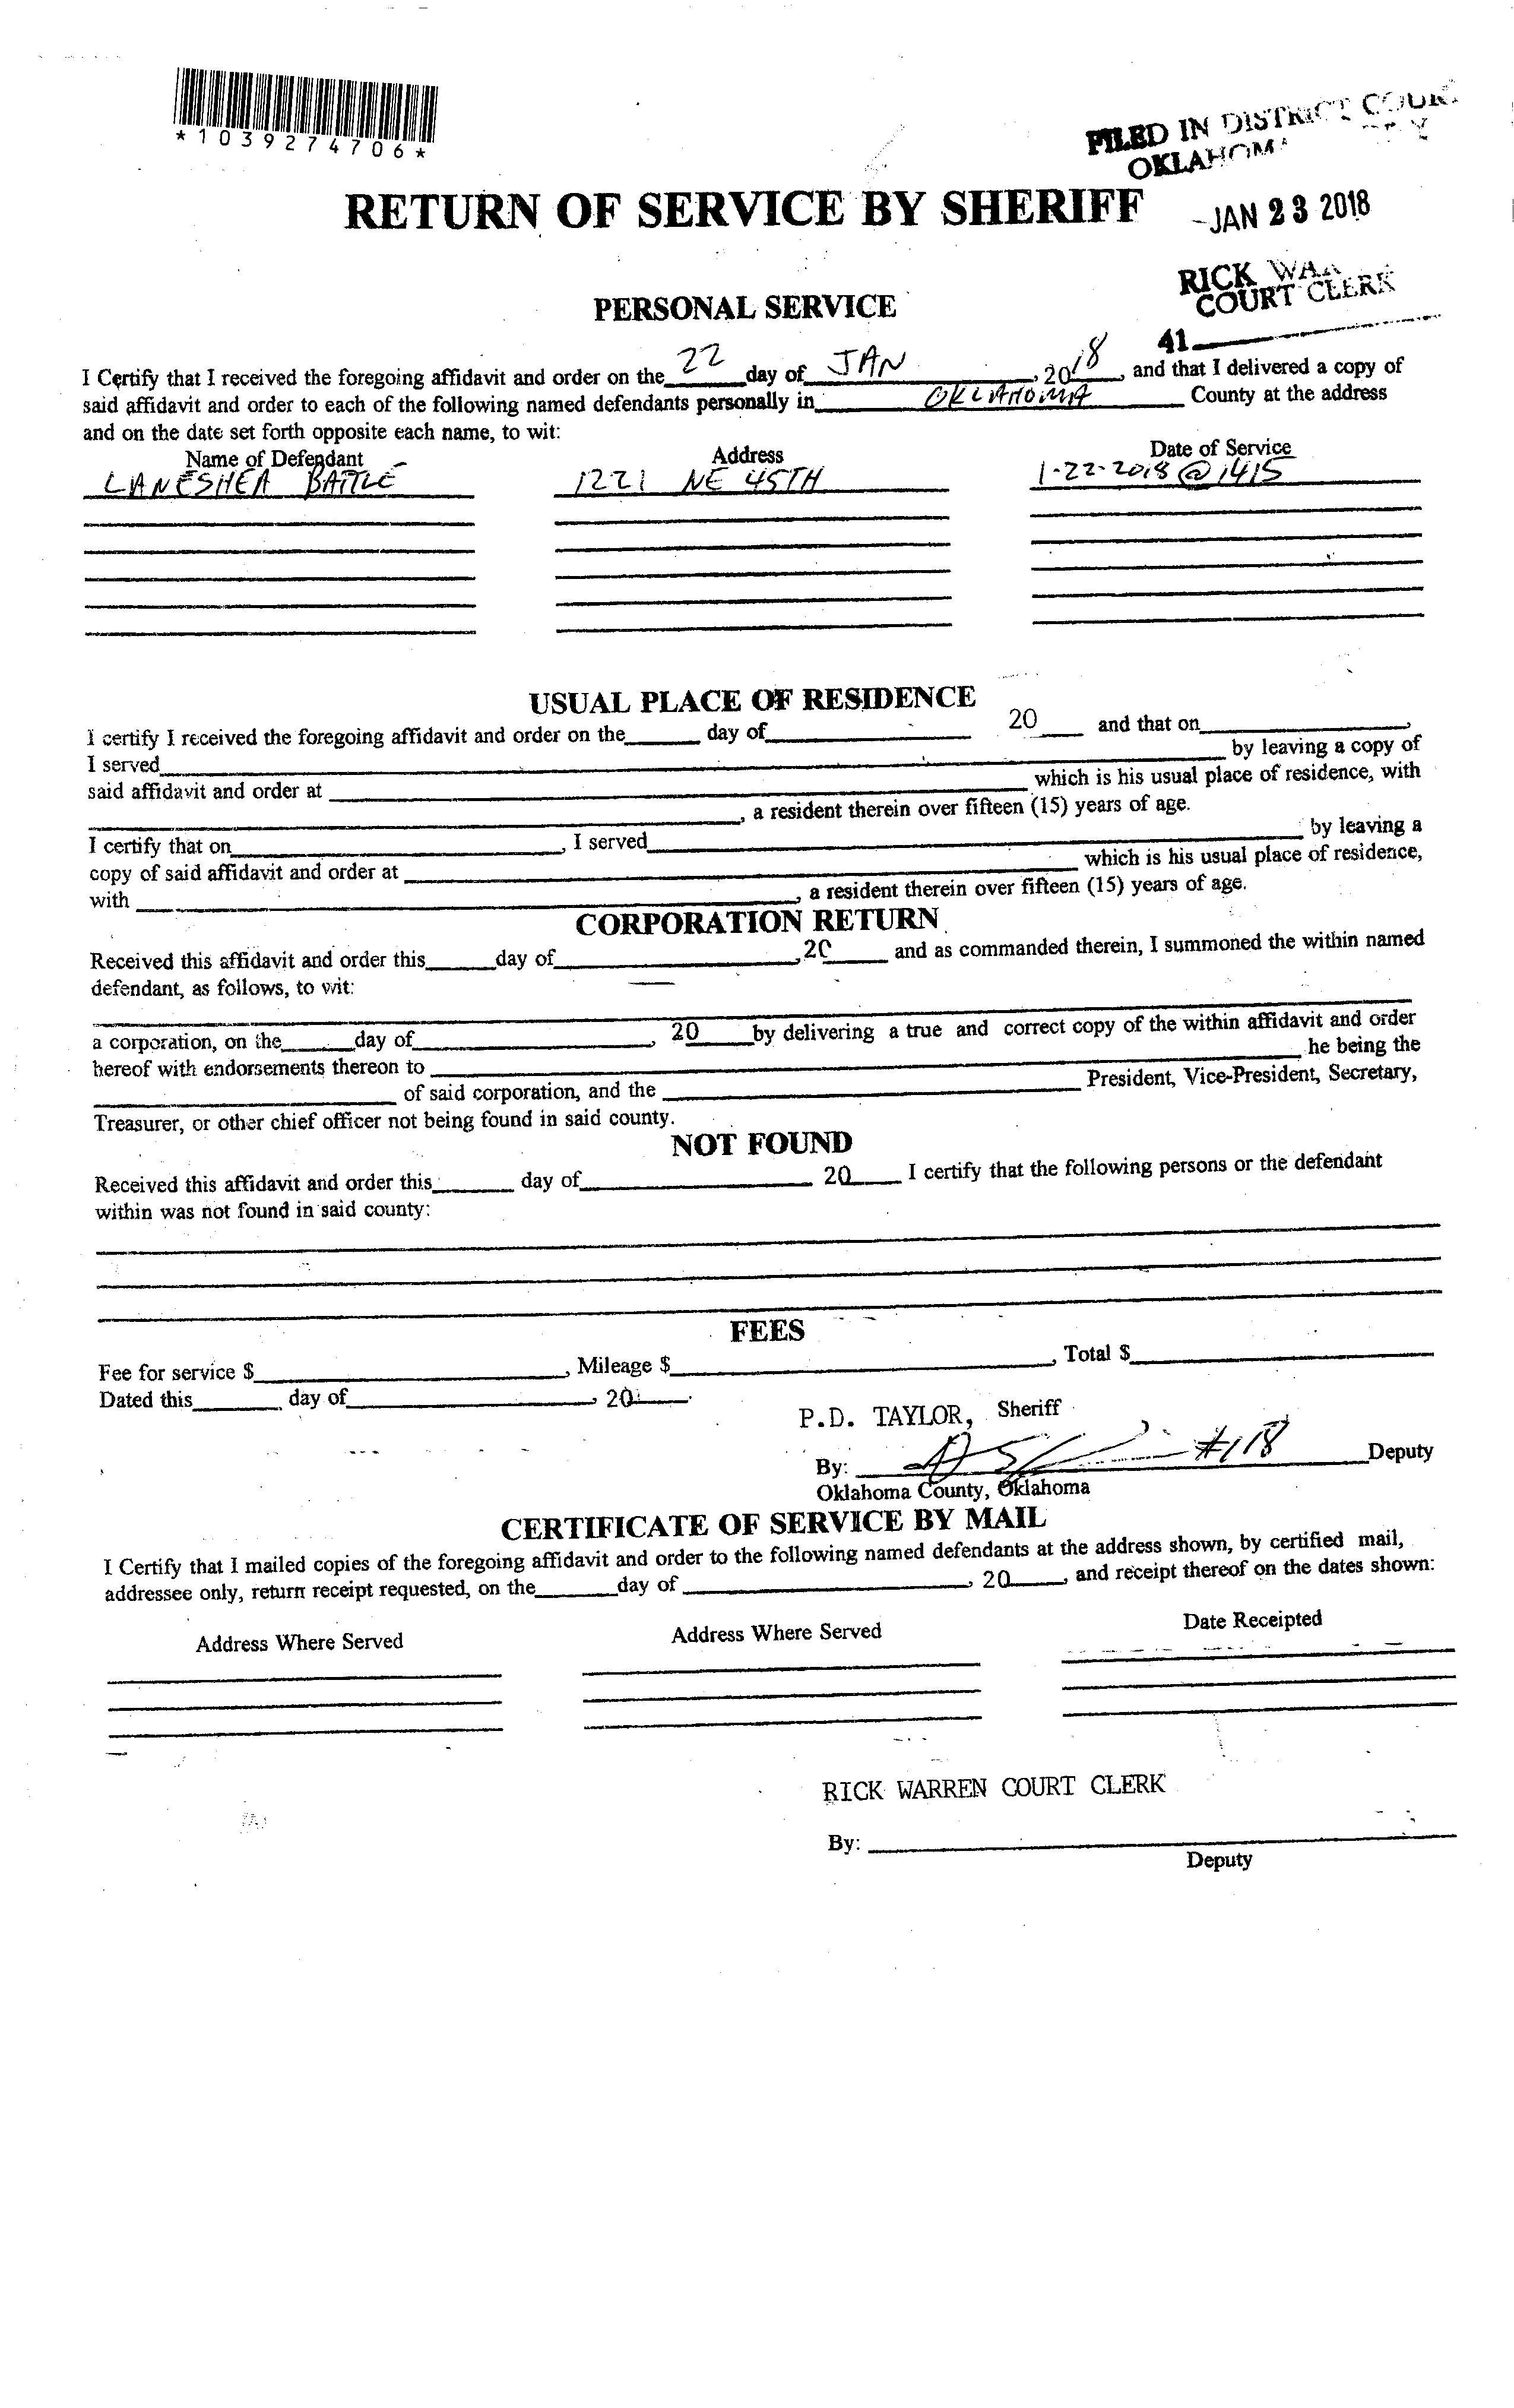 *1039274706*
FILED IN DISTRICT COURT
OKLAHOMA
JAN 23 2018
RICK
COURT CLERK
41
RETURN OF SERVICE BY SHERIFF
PERSONAL SERVICE
I Certify that I received the foregoing affidavit and order on the 22 day of JAN, 2018, and that I delivered a copy of
said affidavit and order to each of the following named defendants personally in OKLAHOMA County at the address
and on the date set forth opposite each name, to wit:
Name of Defendant Address Date of Service
LANESHEA BATTLE 1221 NE 45TH 1-22-2018 @ 1415
USUAL PLACE OF RESIDENCE
I certify I received the foregoing affidavit and order on the______ day of______ 20____ and that on______,
I served______ by leaving a copy of
said affidavit and order at ______ which is his usual place of residence, with
______, a resident therein over fifteen (15) years of age.
I certify that on______, I served______ by leaving a
copy of said affidavit and order at ______ which is his usual place of residence,
with ______, a resident therein over fifteen (15) years of age.
CORPORATION RETURN
Received this affidavit and order this______day of______, 20____ and as commanded therein, I summoned the within named
defendant, as follows, to wit:
a corporation, on the______day of______, 20____by delivering a true and correct copy of the within affidavit and order
hereof with endorsements thereon to ______ he being the
______ of said corporation, and the ______ President, Vice-President, Secretary,
Treasurer, or other chief officer not being found in said county.
NOT FOUND
Received this affidavit and order this______ day of______ 20____ I certify that the following persons or the defendant
within was not found in said county:
FEES
Fee for service $______, Mileage $______, Total $______
Dated this______ day of______, 20____.
P.D. TAYLOR, Sheriff
By: #118 Deputy
Oklahoma County, Oklahoma
CERTIFICATE OF SERVICE BY MAIL
I Certify that I mailed copies of the foregoing affidavit and order to the following named defendants at the address shown, by certified mail,
addressee only, return receipt requested, on the______day of ______, 20____, and receipt thereof on the dates shown:
Address Where Served Address Where Served Date Receipted
RICK WARREN COURT CLERK
By: ______
Deputy